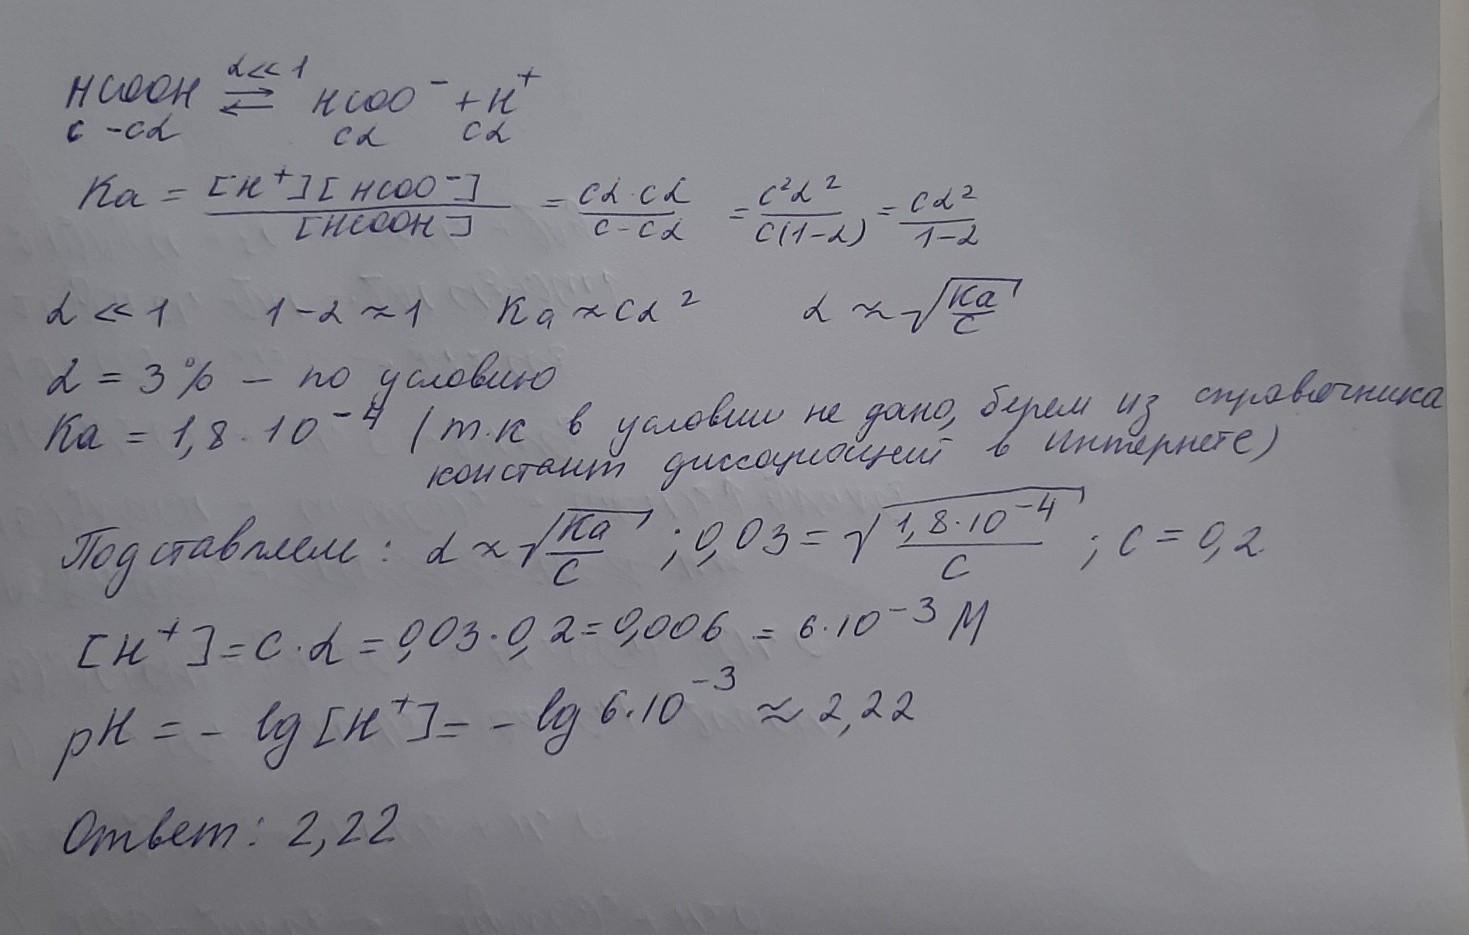 HCOOH ⇌ HCOO⁻ + H⁺
α<<1
c - cα   cα   cα
Ka = [H⁺][HCOO⁻] / [HCOOH] = cα·cα / c-cα = c²α² / c(1-α) = cα² / 1-α
α << 1   1-α ≈ 1   Ka ≈ cα²   α ≈ √(Ka/c)
α = 3% – по условию
Ka = 1,8·10⁻⁴ (т.к в условии не дано, берем из справочника
констант диссоциацией в Интернете)
Подставляем: α ≈ √(Ka/c) ; 0,03 = √(1,8·10⁻⁴/c) ; c = 0,2
[H⁺] = c·α = 0,03·0,2 = 0,006 = 6·10⁻³ M
pH = - lg [H⁺] = - lg 6·10⁻³ ≈ 2,22
Ответ: 2,22